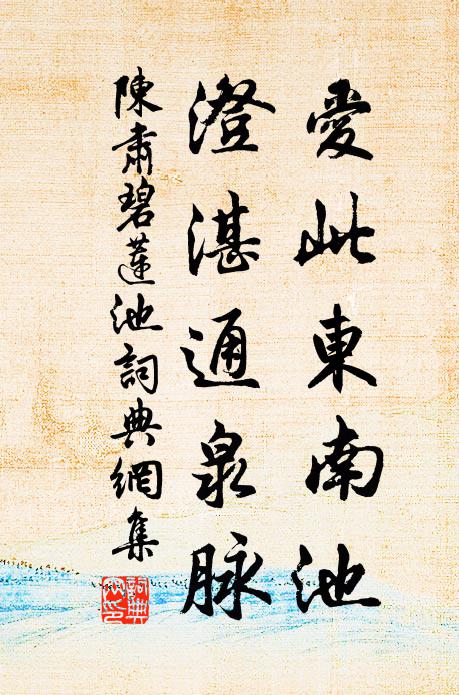 愛此東南池
澄湛通泉脉
陳肅碧蓮池詞典網集